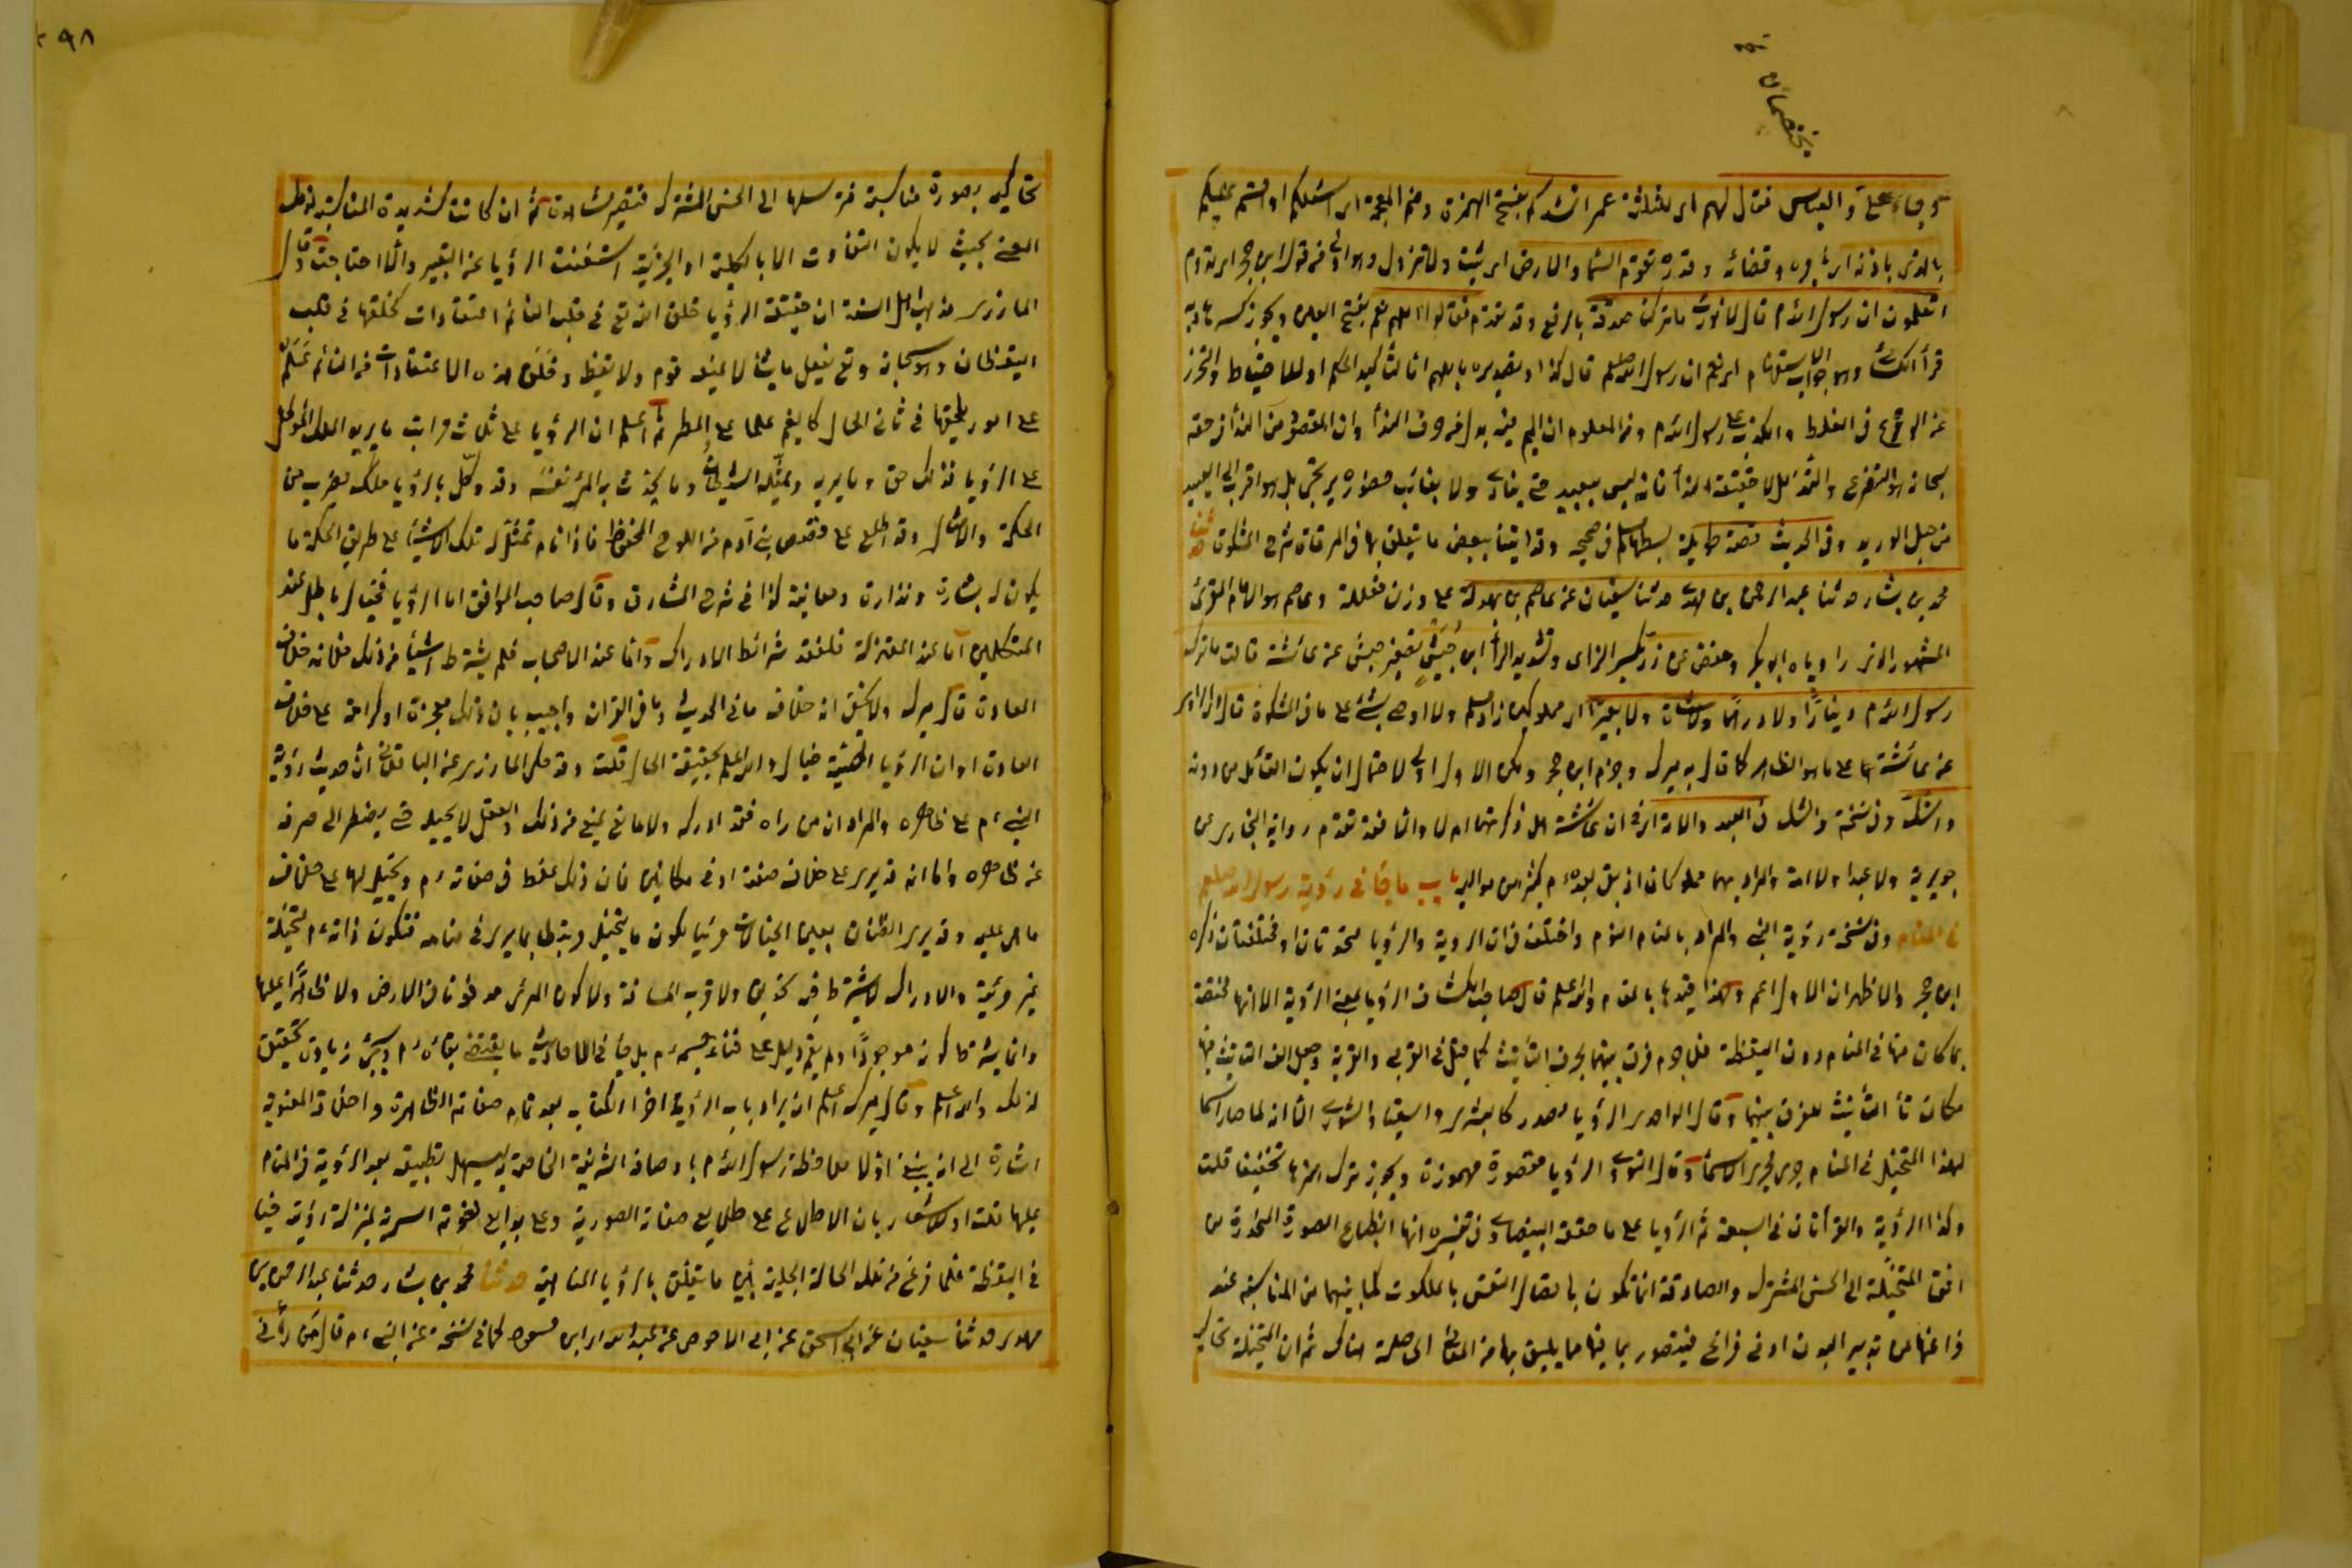 يختصمان
وجاء علي والعباس فقال لهم اى للثلاثة عمر انشدكم بفتح الهمزة وضم المعجمة اى اسئلكم او اقسم عليكم
بالذى باذنه اى بامره وقضائه وقدره تقوم السما والارض اى تثبت ولا تزول وهو اولى من قول ابن حجر اى تدوم
اتعلمون ان رسول الله م قال لا نورث ما تركنا صدقة بالرفع وقد تقدم فقالوا اللهم نعم بفتح العين ويجوز كسرها وبه
قرأ الكسائى وهو جواب الاستفهام اى نعم ان رسول الله صلعم قال كذا وتصديره باللهم اما لتأكيد الحكم او للاحتياط والتحرز
عن الوقوع فى الغلط والكذب على رسول الله م ومن المعلوم ان الميم فيه بدل من حرف النداء وان المقصود من النداء فى حقه
سبحانه هو التضرع والتذلل لا حقيقة النداء فانه ليس ببعيد حتى ينادى ولا بغائب حضوره يرتجى بل هو اقرب الى العبيد
من حبل الوريد وفى الحديث قصة طويلة بسطها مسلم فى صحيحه وقد اتينا ببعض ما يتعلق بها فى المرقاة شرح المشكوة حدثنا
محمد بن بشار حدثنا عبد الرحمن بن مهدى حدثنا سفيان عن عاصم بن بهدلة على وزن فعللة وعاصم هو الامام المقرئ
المشهور الذى راوياه ابو بكر وحفص عن زر بكسر الزاى وتشديد الراء ابن حبيش تصغير حبش عن عائشة قالت ما ترك
رسول الله م دينارا ولا درهما ولا شاة ولا بعيرا اى مملوكين زاد مسلم ولا اوصى بشئ على ما فى المشكوة قال اى الراوى
عن عائشة على ما هو الظاهر كما قال به ميرك وجزم ابن حجر ولكن الاول اولى لاحتمال ان يكون القائل من دونه
واشك وفى نسخة والشك فى العبد والامة اى فى ان عائشة هل ذكرتهما ام لا والا فقد تقدم رواية البخارى عن
جويرية ولا عبدا ولا امة والمراد بهما مملوكان اذ بقى بعده م كثير من مواليه باب ما جاء فى رؤية رسول الله صلعم
فى المنام وفى نسخة رؤية النبى والمراد بالمنام النوم واختلف فى ان الروية والرؤيا متحدتان او مختلفتان ذكره
ابن حجر والاظهر ان الاول اعم ولهذا قيدها بالمنام والله اعلم قال صاحب الكشاف الرؤيا بمعنى الرؤية الا انها مختصة
بما كان منها فى المنام دون اليقظة فلا جرم فرق بينهما بحرف التأنيث كما قيل فى القربى والقربة وجعل الف التأنيث فيها
مكان تاء التأنيث للفرق بينهما وقال الواحدى الرؤيا مصدر كالبشرى والسقيا والشورى الا انه لما صار اسما
لهذا المتخيل فى المنام جرى مجرى الاسماء وقال النووى الرؤيا مقصورة مهموزة ويجوز ترك همزها تخفيفا قلت
وكذا الرؤية والقرأتان فى السبعة ثم الرؤيا على ما حققه البيضاوى فى تفسيره انها انطباع الصورة المنحدرة من
افق المتخيلة الى الحس المشترك والصادقة انما تكون باتصال النفس بالملكوت لما بينهما من المناسبة عند
فراغها من تدبير البدن ادنى فراغ فيتصور بما فيها مما يليق بها من المعانى الحاصلة هناك ثم ان المتخيلة تحاكيه
٢٩٨
تحاكيه بصورة مناسبة فترسلها الى الحس المشترك فتصير مشاهدة ثم ان كانت شديدة المناسبة لذلك
المعنى بحيث لا يكون التفاوت الا بالكلية او الجزئية استغنت الرؤيا عن التعبير والا احتاجت وقال
المازرى مذهب اهل السنة ان حقيقة الرؤيا خلق الله تع فى قلب النائم اعتقادات كخلقها فى قلب
اليقظان وهو سبحانه وتع يفعل ما يشا لا يمنعه نوم ولا يقظة وخلق هذه الاعتقادات فى النائم علم
على امور يلحقها فى ثانى الحال كالغيم علما على المطر ثم اعلم ان الرؤيا على ثلاث مراتب ما يريه الملك الموكل
على الرؤيا فذلك حق وما يريه ويمثله الشيطان وما يحدث به المرء نفسه وقد وكل بالرؤيا ملك يضرب من
الحكمة والامثال وقد اطلع على قصص بنى آدم من اللوح المحفوظ فاذا نام تمثل له تلك الاشيا على طريق الحكمة ما
يكون له بشارة ونذارة ومعاتبة كذا فى شرح المشارق وقال صاحب المواقف اما الرؤيا فخيال باطل عند
المتكلمين اما عند المعتزلة فلفقد شرائط الادراك واما عند الاصحاب فلم يشترط اشياء من ذلك فلانه خلاف
العادة قال ميرك ولا يخفى انه خلاف ما فى الحديث وما فى القران واجيب بان ذلك معجزة او كرامة على خلاف
العادة او ان الرؤيا الحسية خيال والله اعلم بحقيقة الحال قلت وقد حكى المازرى عن الباقلانى ان حديث رؤية
النبى م على ظاهره والمراد ان من راه فقد ادركه ولا مانع يمنع من ذلك والعقل لا يحيله حتى يضطر الى صرفه
عن ظاهره واما انه قد يرى على خلاف صفته او فى مكانين فان ذلك غلط فى صفاته م وتخيل لها على خلاف
ما هى عليه وقد يرى الظان بعض الخيالات مرئيا لكون ما يتخيل مرتبطا بما يرى فى منامه فتكون ذاته م متخيلة
غير مرئية والادراك لا يشترط فيه تحديق ولا قرب المسافة ولا كون المرئى مدفونا فى الارض ولا ظاهرا عليها
وانما يشترط كونه موجودا ولم يقم دليل على فناء جسمه م بل جاء فى الاحاديث ما يقتضى بقاءه م وسيجئ زيادة تحقيق
لذلك والله اعلم وقال ميرك اعلم ان ايراد باب الرؤية اخر الكتاب بعد تمام صفاته الظاهرة واخلاقه المعنوية
اشارة الى انه ينبغى اولا ملاحظة رسول الله م باوصافه الشريفة الخاصة به ليسهل تطبيقه بعد الرؤية فى المنام
عليها قلت او للاشعار بان الاطلاع على طلايع صفاته الصورية وعلى بدايع نعوته السرية بمنزلة رؤيته فيا
فى اليقظة فلما فرغ من تلك الحالة الجلية بين ما يتعلق بالرؤيا المنامية حدثنا محمد بن بشار حدثنا عبد الرحمن بن
مهدى حدثنا سفيان عن ابى اسحق عن ابى الاحوص عن عبد الله اى ابن مسعود كما فى نسخة عن النبى م قال من رأنى